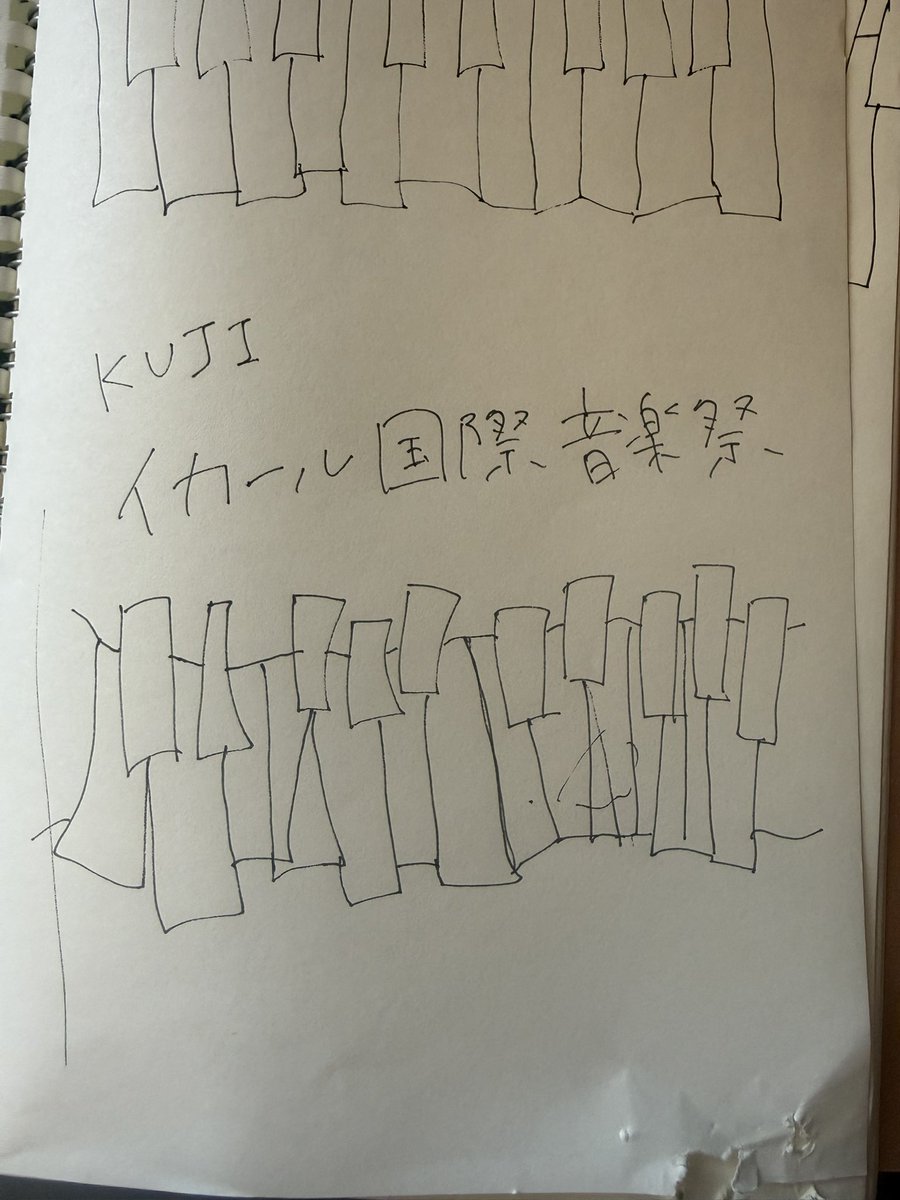 KUJI
イカール国際音楽祭